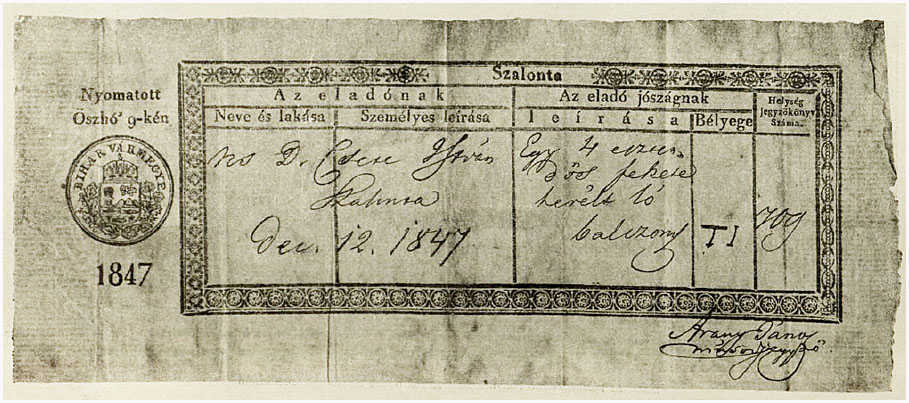 Szalonta
Nyomatott
Oszhó' 9-kén
BIHAR VÁRMEGYE
1847
Az eladónak
Az eladó jószágnak
Neve és lakása
Személyes leírása
leírása
Bélyege
Helység
jegyzőkönyv
Száma
D. Csere István
Dec. 12. 1847
Egy 4 eszten-
dős fekete
herélt ló
TI
709
Arany János